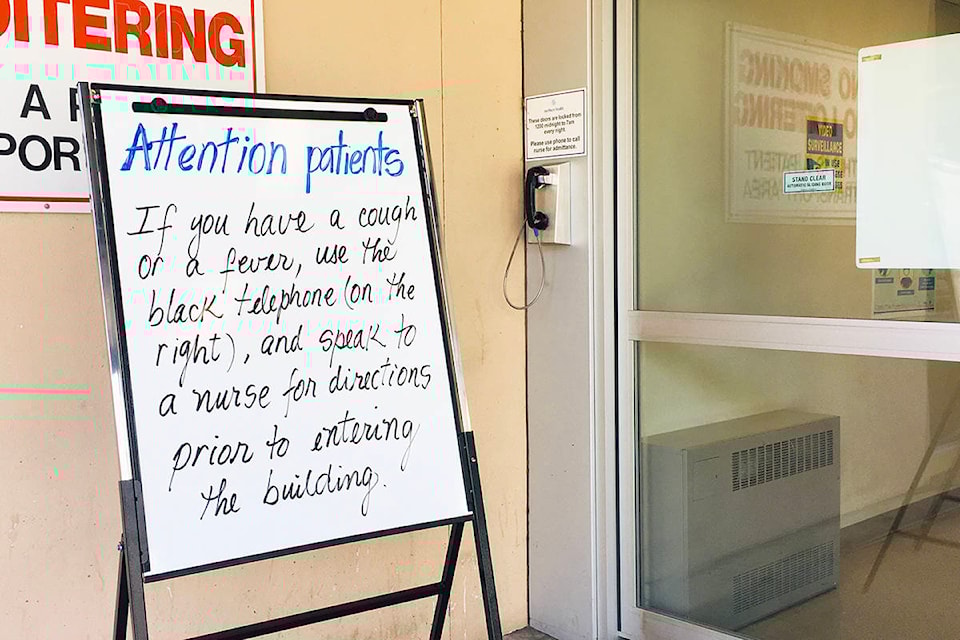 ITERING
A
POR
Attention patients
If you have a cough
or a fever, use the
black telephone (on the
right), and speak to
a nurse for directions
prior to entering
the building.
These doors are locked from
1200 midnight to 7am
every night.
Please use phone to call
nurse for admittance.
NO SMOKING
NO LOITERING
PATIENT
TRANSPORT
AREA
VIDEO
SURVEILLANCE
IN USE
STAND CLEAR
AUTOMATIC SLIDING DOOR